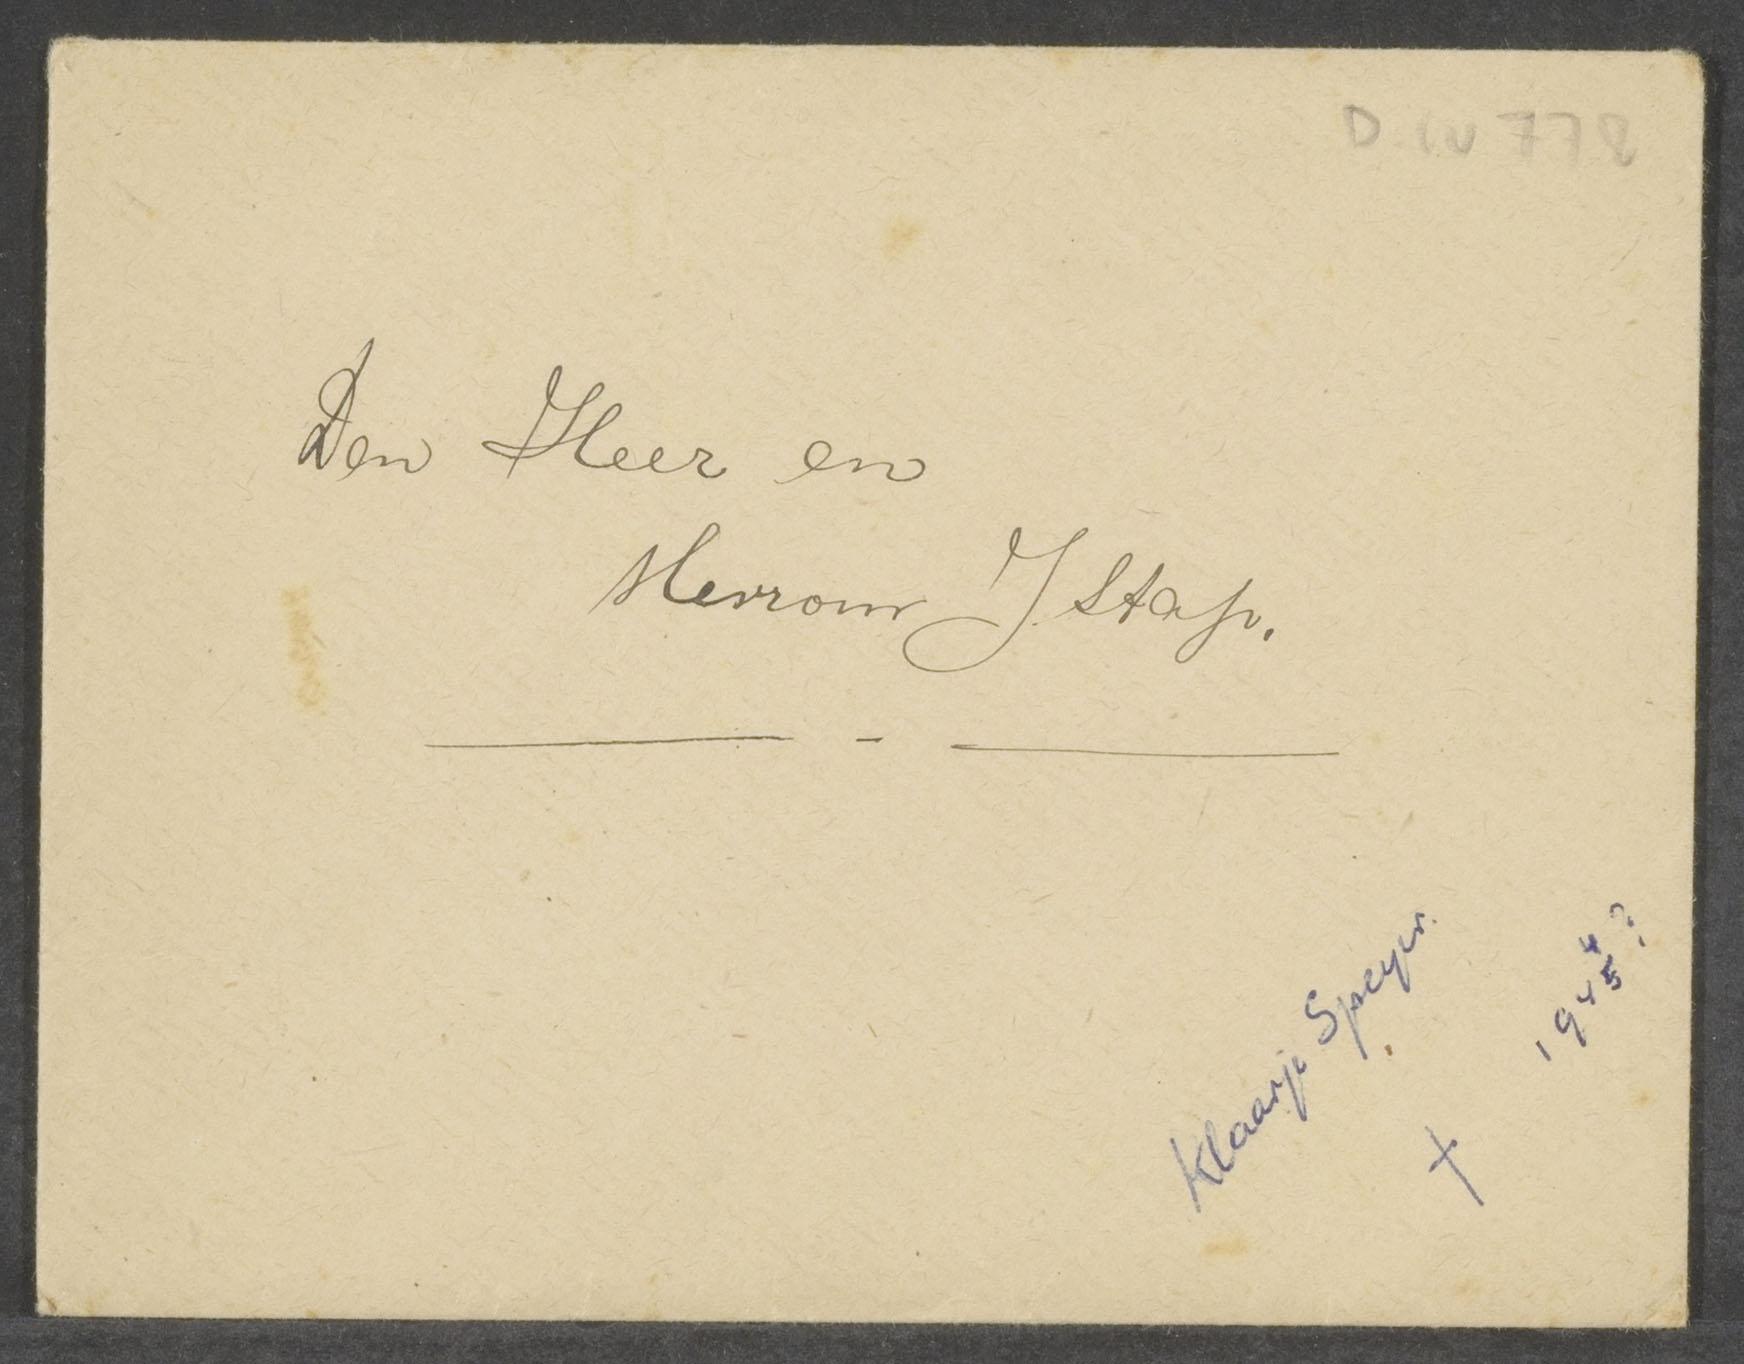 Den Heer en
Mevrouw J Stap.
Klaartje Speyer.
† 1944/5?